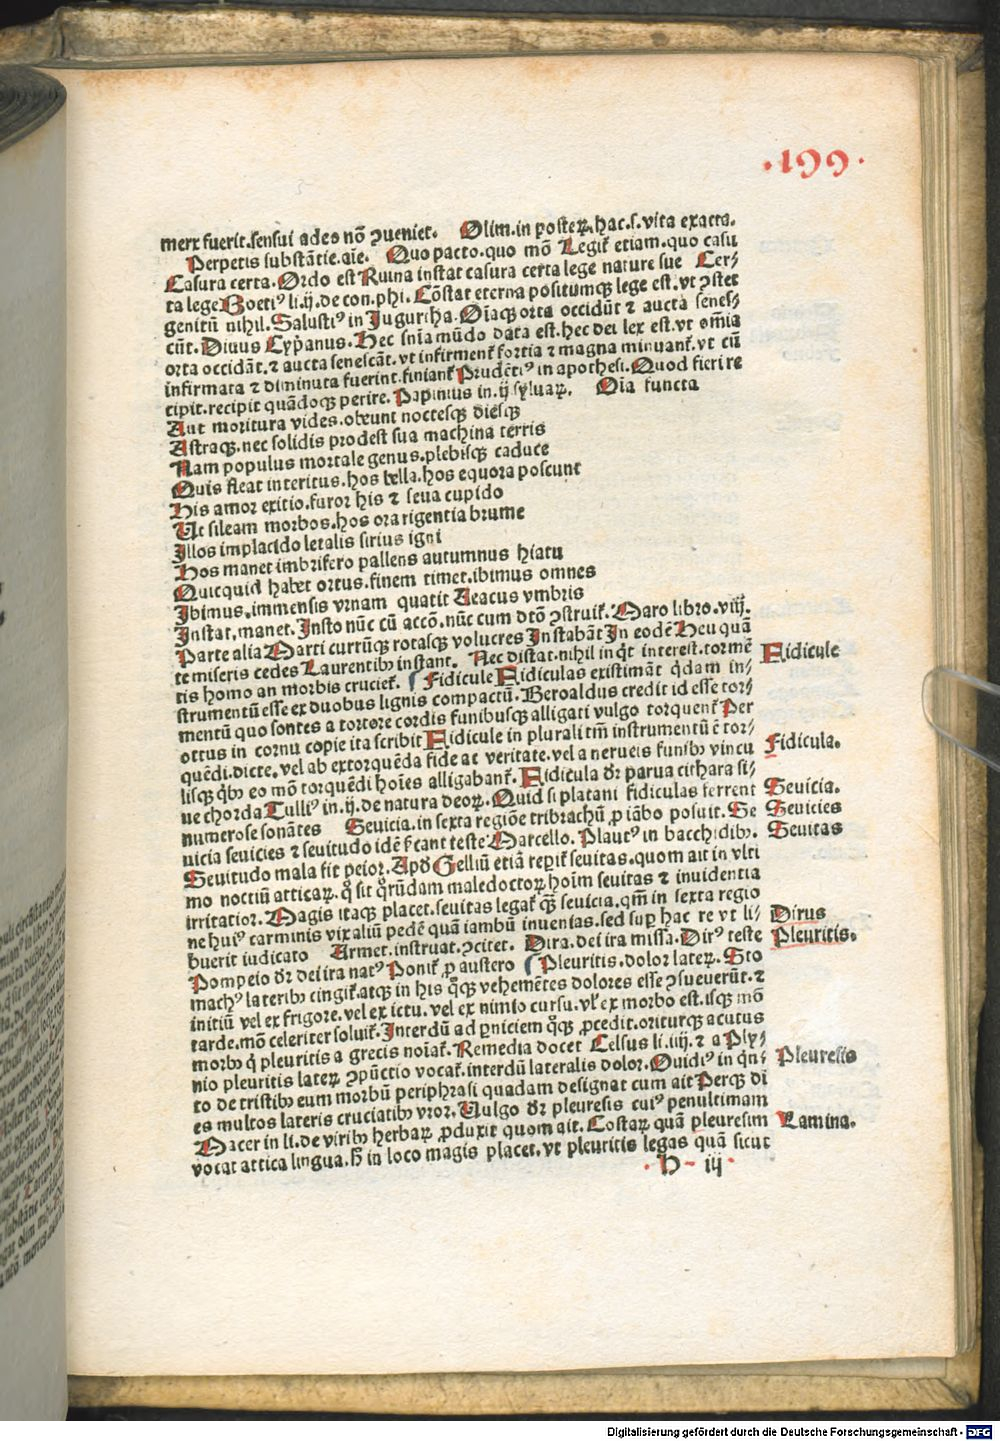 .199.
merx fuerit.sensui adeo nõ ꝯueniet. Olim.in posteꝝ.hac.s.vita exacta.
Perpetis substãtie.aĩe. Quo pacto.quo mõ Legit᷑ etiam.quo casu
Casura certa.Ordo est Ruina instat casura certa lege nature sue Cer/
ta lege Boetiꝰ li.ij.de con.phi. Cõstat eterna positumqꝫ lege est.vt ꝯstet
genitũ nihil.Salustiꝰ in Jugurtha.Oĩaqꝫ orta occidũt ⁊ aucta senes/
cũt.Diuus Cyp̃anus.Hec sñia mũdo data est.hec dei lex est.vt om̃ia
orta occidãt.⁊ aucta senescãt.vt infirment᷑ fortia ⁊ magna minuant᷑.vt cũ
infirmata ⁊ diminuta fuerint.finiant᷑ Prudẽtiꝰ in apothesi.Quod fieri re
cipit.recipit quãdoqꝫ perire.Papinius in.ij syluaꝝ. Oĩa functa
Aut moritura vides.obeunt noctesqꝫ diesqꝫ
Astraqꝫ.nec solidis prodest sua machina terris
Nam populus mortale genus.plebisqꝫ caduce
Quis fleat interitus.hos bella.hos equora poscunt
His amor exitio.furor his ⁊ seua cupido
Ut sileam morbos.hos ora rigentia brume
Illos implacido letalis sirius igni
Hos manet imbrifero pallens autumnus hiatu
Quicquid habet ortus.finem timet.ibimus omnes
Ibimus.immensis vrnam quatit Aeacus vmbris
Instat.manet.Insto nũc cũ accõ.nũc cum dtõ ꝯstruit᷑.Maro libro.viij.
Parte alia Marti currũqꝫ rotasqꝫ volucres Instabãt In eodẽ Heu quã
te miseris cedes Laurentibꝫ instant. Nec distat.nihil inq̃t interest.tormẽ
tis homo an morbis cruciet᷑. Fidicule Fidiculas existimãt q̇dam in/
strumentũ esse ex duobus lignis compactũ.Beroaldus credit id esse tor/
mentũ quo sontes a tortore cordis funibusqꝫ alligati vulgo torquent᷑ Per
ottus in cornu copie ita scribit Fidicule in plurali tm̃ instrumentũ ẽ tor/
quẽdi.dicte.vel ab extorquẽda fide ac veritate.vel a nerueis funibꝫ vincu
lisqꝫ q̇bꝫ eo mõ torquẽdi hoĩes alligabant᷑.Fidicula dr̃ parua cithara si/
ue chorda Tulliꝰ in.ij.de natura deoꝝ.Quid si platani fidiculas ferrent
numerose sonãtes Seuicia.in sexta regiõe tribrachũ ꝓ iãbo posuit.Se
uicia seuicies ⁊ seuitudo idẽ s̃cant teste Marcello.Plautꝰ in bacchidibꝫ.
Seuitudo mala fit peior.Apd̃ Gelliũ etiã reꝑit᷑ seuitas.quom ait in vlti
mo noctiũ atticaꝝ.q̊ sit q̊rũdam maledoctoꝝ hoĩm seuitas ⁊ inuidentia
irritatior.Magis itaqꝫ placet.seuitas legat᷑ qꝫ̃ seuicia.qm̃ in sexta regio
ne huiꝰ carminis vix aliũ pedẽ quã iambũ inuenias.sed suꝑ hac re vt li/
buerit iudicato Armet.instruat.ꝯcitet. Dira.dei ira missa.Dirꝰ teste
Pompeio dr̃ dei ira natꝰ Ponit᷑ ꝓ austero Pleuritis.dolor lateꝝ. Sto
machꝰ lateribꝫ cingit᷑.atqꝫ in his q̊qꝫ vehemẽtes dolores esse ꝯsueuerũt.⁊
initiũ vel ex frigore.vel ex ictu.vel ex nimio cursu.vl̕ ex morbo est.isqꝫ mõ
tarde.mõ celeriter soluit᷑.Interdũ ad ꝑniciem q̊qꝫ ꝓcedit.oriturqꝫ acutus
morbꝰ q̇ pleuritis a grecis noĩat᷑.Remedia docet Celsus li.iiij.⁊ a Ply/
nio pleuritis lateꝝ ꝯpũctio vocat᷑.interdũ lateralis dolor.Ouidiꝰ in q̇n/
to de tristibꝫ eum morbũ periphrasi quadam designat cum ait Perqꝫ di
es multos lateris cruciatibꝫ vror.Uulgo dr̃ pleuresis cuiꝰ penultimam
Macer in li.de viribꝫ herbaꝝ ꝓduxit quom ait.Costaꝝ quã pleuresim
vocat attica lingua.h̃ in loco magis placet.vt pleuritis legas quã sicut
.H-iij.
Fidicule
Fidicula.
Seuicia.
Seuicies
Seuitas
Dirus
Pleuritis.
Pleuresis
Lamina.
Digitalisierung gefördert durch die Deutsche Forschungsgemeinschaft - DFG